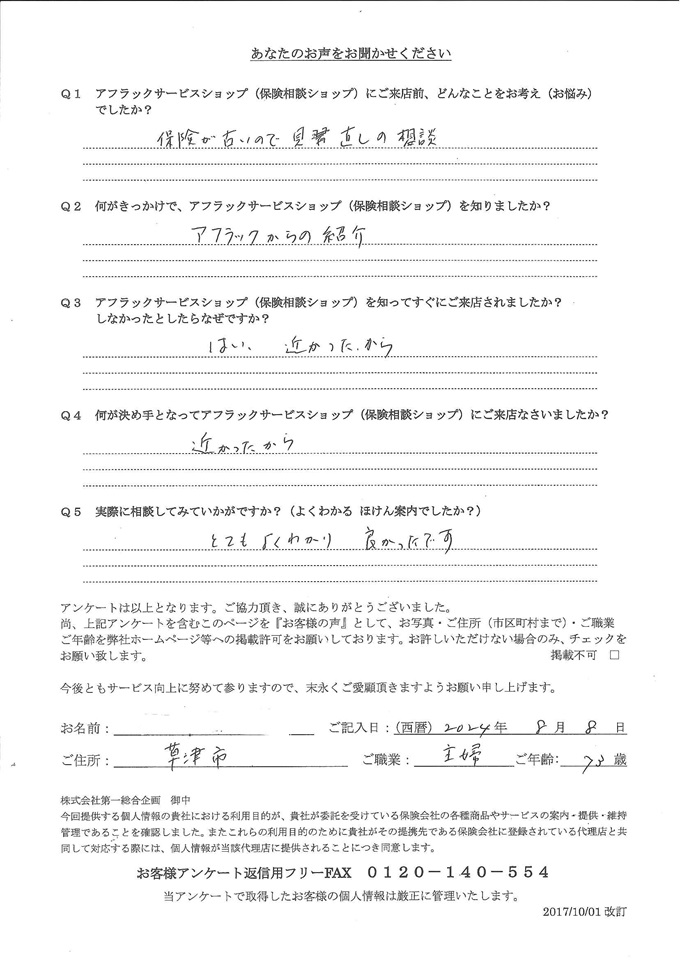 あなたのお声をお聞かせください
Q1 アフラックサービスショップ（保険相談ショップ）にご来店前、どんなことをお考え（お悩み）
でしたか？
保険が古いので 見習 直しの 相談
Q2 何がきっかけで、アフラックサービスショップ（保険相談ショップ）を知りましたか？
アフラックからの 紹介
Q3 アフラックサービスショップ（保険相談ショップ）を知ってすぐにご来店されましたか？
しなかったとしたらなぜですか？
はい、 近かった.から
Q4 何が決め手となってアフラックサービスショップ（保険相談ショップ）にご来店なさいましたか？
近かったから
Q5 実際に相談してみていかがですか？（よくわかる ほけん案内でしたか？）
とても よくわかり 良かったです
アンケートは以上となります。ご協力頂き、誠にありがとうございました。
尚、上記アンケートを含むこのページを『お客様の声』として、お写真・ご住所（市区町村まで）・ご職業
ご年齢を弊社ホームページ等への掲載許可をお願いしております。お許しいただけない場合のみ、チェックを
お願い致します。 掲載不可 □
今後ともサービス向上に努めて参りますので、末永くご愛顧頂きますようお願い申し上げます。
お名前： ご記入日：（西暦）2024年 8月 8日
ご住所： 草津市 ご職業： 主婦 ご年齢： 73歳
株式会社第一総合企画 御中
今回提供する個人情報の貴社における利用目的が、貴社が委託を受けている保険会社の各種商品やサービスの案内・提供・維持
管理であることを確認しました。またこれらの利用目的のために貴社がその提携先である保険会社に登録されている代理店と共
同して対応する際には、個人情報が当該代理店に提供されることにつき同意します。
お客様アンケート返信用フリーFAX 0120-140-554
当アンケートで取得したお客様の個人情報は厳正に管理いたします。
2017/10/01 改訂